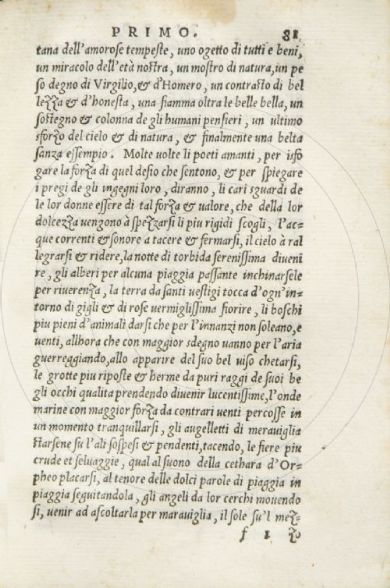 PRIMO. 81
tana dell'amorose tempeste, uno ogetto di tutti e beni,
un miracolo dell'età nostra, un mostro di natura, un pe
so degno di Virgilio, & d'Homero, un contrasto di bel
lezza & d'honesta, una fiamma oltra le belle bella, un
sostegno & colonna de gli humani pensieri, un ultimo
sforzo del cielo & di natura, & finalmente una belta
sanza essempio. Molte uolte li poeti amanti, per isfo
gare la forza di quel desio che sentono, & per spiegare
i pregi de gli ingegni loro, diranno, li cari sguardi de
le lor donne essere di tal forza & ualore, che della lor
dolcezza uengono à spezzarsi li piu rigidi scogli, l'ac=
que correnti & sonore a tacere & fermarsi, il cielo à ral
legrarsi & ridere, la notte di torbida serenissima diueni
re, gli alberi per alcuna piaggia passante inchinarsele
per riuerenza, la terra da santi uestigi tocca d'ogn'in=
torno di gigli & di rose uermiglissima fiorire, li boschi
piu pieni d'animali darsi che per l'innanzi non soleano, e
uenti, allhora che con maggior sdegno uanno per l'aria
guerreggiando, allo apparire del suo bel uiso chetarsi,
le grotte piu riposte & herme da puri raggi de suoi be
gli occhi qualita prendendo diuenir lucentissime, l'onde
marine con maggior forza da contrari uenti percosse in
un momento tranquillarsi, gli augelletti di merauiglia
starsene su l'ali sospesi & pendenti, tacendo, le fiere piu
crude et seluaggie, qual al suono della cethara d'Or=
pheo placarsi, al tenore delle dolci parole di piaggia in
piaggia seguitandola, gli angeli da lor cerchi mouendo
si, uenir ad ascoltarla per marauiglia, il sole su'l mez=
f 1 zo